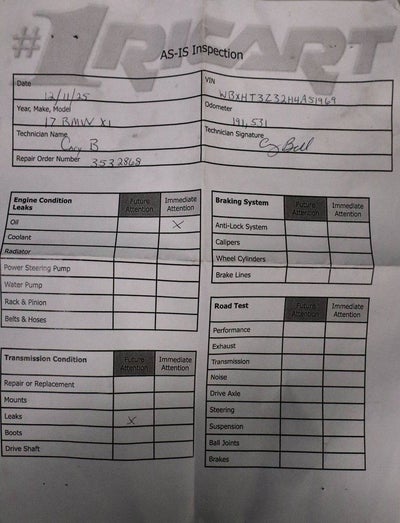 #1 RICART
AS-IS Inspection
Date 12/11/25
VIN WBXHT3Z32H4A51969
Year, Make, Model 17 BMW X1
Odometer 191,531
Technician Name Cory B
Technician Signature
Repair Order Number 3532868
Engine Condition Future Attention Immediate Attention
Leaks
Oil X
Coolant
Radiator
Power Steering Pump
Water Pump
Rack & Pinion
Belts & Hoses
Transmission Condition Future Attention Immediate Attention
Repair or Replacement
Mounts
Leaks X
Boots
Drive Shaft
Braking System Future Attention Immediate Attention
Anti-Lock System
Calipers
Wheel Cylinders
Brake Lines
Road Test Future Attention Immediate Attention
Performance
Exhaust
Transmission
Noise
Drive Axle
Steering
Suspension
Ball Joints
Brakes